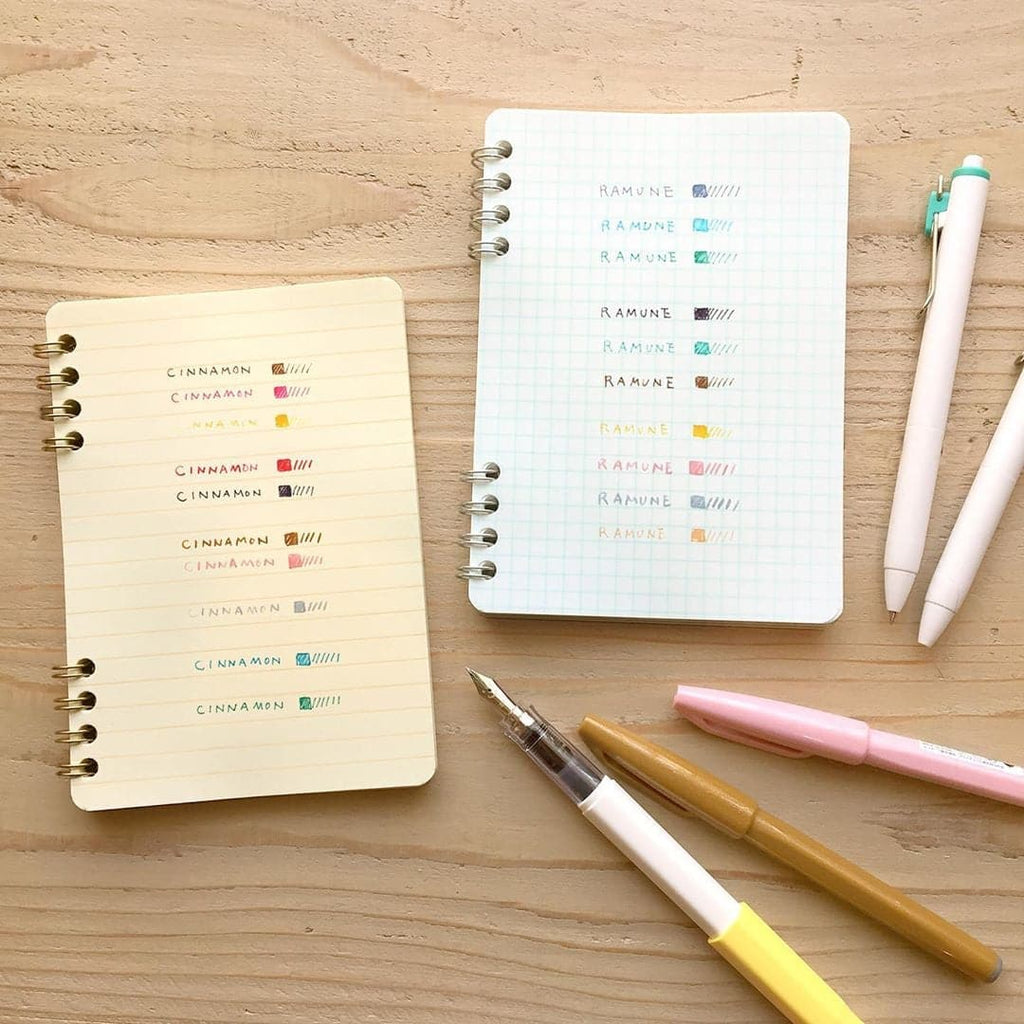 CINNAMON
CINNAMON
NNAMON
CINNAMON
CINNAMON
CINNAMON
CINNAMON
CINNAMON
CINNAMON
CINNAMON
RAMUNE
RAMUNE
RAMUNE
RAMUNE
RAMUNE
RAMUNE
RAMUNE
RAMUNE
RAMUNE
RAMUNE